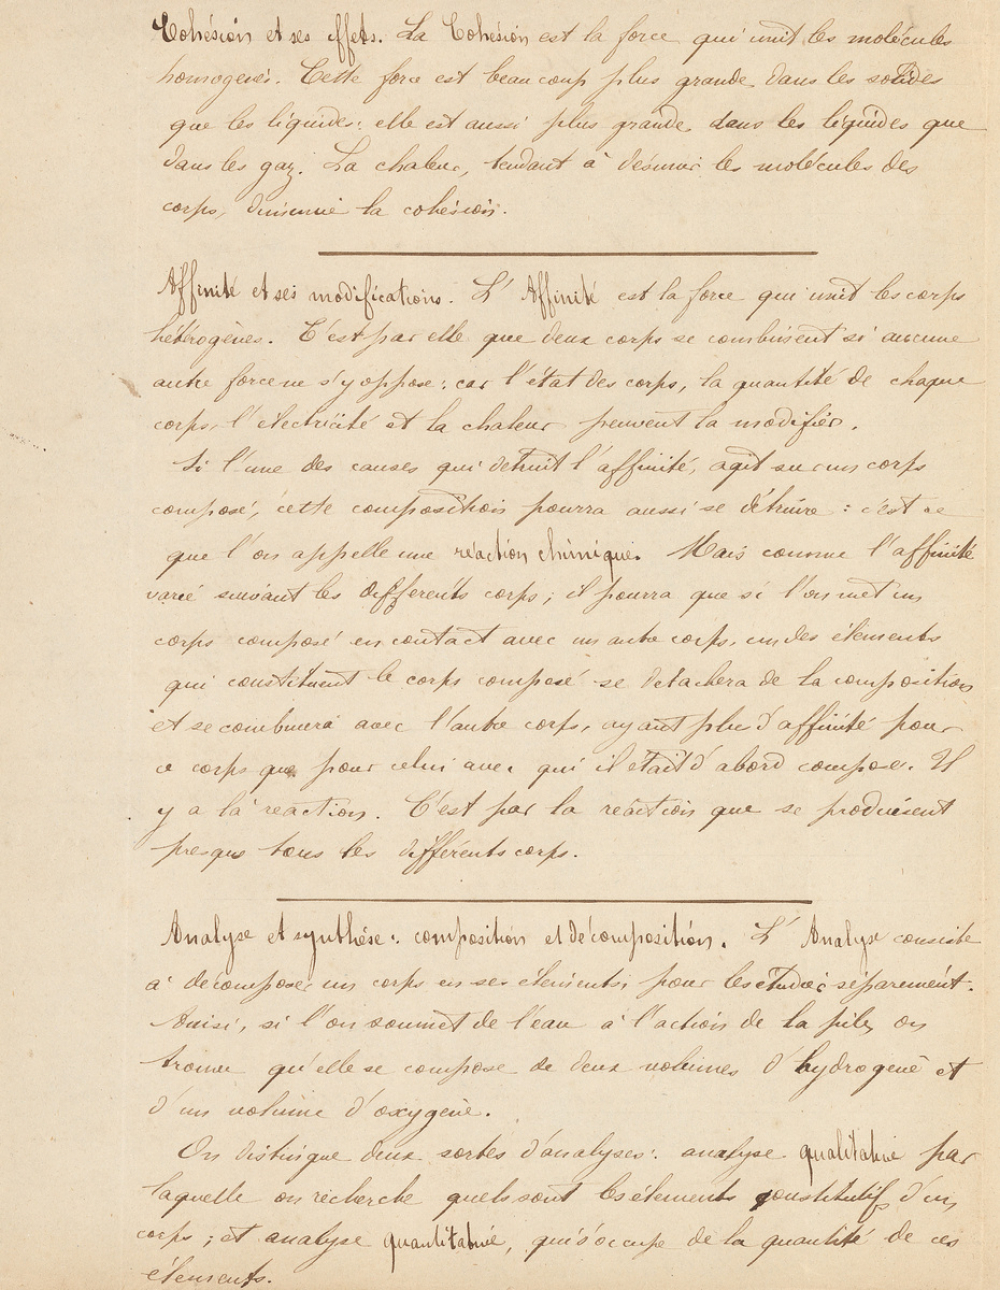 Cohésion et ses effets. La Cohésion est la force qui unit les molécules
homogenes. Cette force est beaucoup plus grande dans les solides
que les liquides: elle est aussi plus grande dans les liquides que
dans les gaz. La chaleur, tendant à désunir les molécules des
corps, diminue la cohésion.
Affinité et ses modifications. L'Affinité est la force qui unit les corps
hétérogènes. C'est par elle que deux corps se combinent si aucune
autre force ne s'y oppose: car l'état des corps, la quantité de chaque
corps, l'électricité et la chaleur peuvent la modifier.
Si l'une des causes qui détruit l'affinité, agit sur un corps
composé, cette composition pourra aussi se détruire: c'est ce
que l'on appelle une réaction chimique. Mais comme l'affinité
varie suivant les différents corps; il pourra que si l'on met un
corps composé en contact avec un autre corps, un des éléments
qui constituent le corps composé se détachera de la composition
et se combinera avec l'autre corps, ayant plus d'affinité pour
ce corps que pour celui avec qui il était d'abord composé. Il
y a là réaction. C'est par la réaction que se produisent
presque tous les différents corps.
Analyse et synthèse: composition et décomposition. L'Analyse consiste
à décomposer un corps en ses éléments pour les étudier séparément.
Ainsi, si l'on soumet de l'eau à l'action de la pile, on
trouve qu'elle se compose de deux volumes d'hydrogène et
d'un volume d'oxygène.
On distingue deux sortes d'analyses: analyse qualitative par
laquelle on recherche quels sont les éléments constitutifs d'un
corps; et analyse quantitative, qui s'occupe de la quantité de ces
éléments.